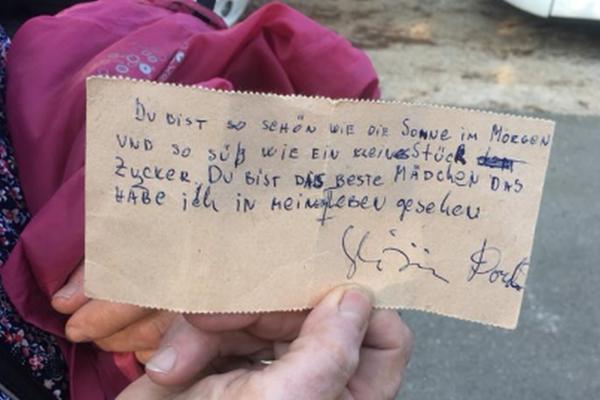 Du bist so schön wie die Sonne im Morgen
und so süß wie ein kleines Stück
Zucker. Du bist das beste Mädchen das
habe ich in mein Leben gesehen